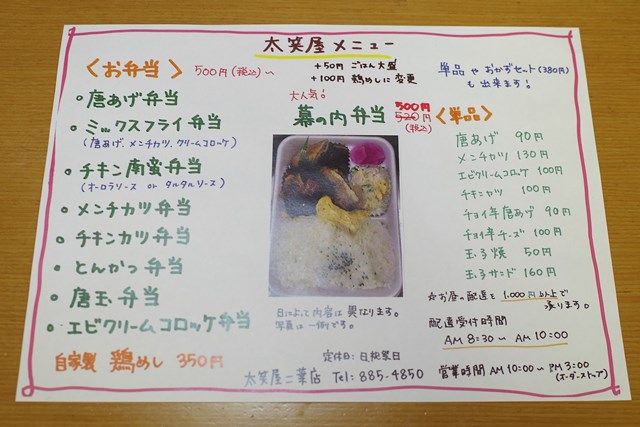 太笑屋メニュー
〈お弁当〉 500円(税込)~
+50円 ごはん大盛
+100円 鶏めしに変更
単品やおかずセット(380円)
も出来ます!
・唐あげ弁当
・ミックスフライ弁当
(唐あげ、メンチカツ、クリームコロッケ)
・チキン南蛮弁当
(オーロラソース or タルタルソース)
・メンチカツ弁当
・チキンカツ弁当
・とんかつ弁当
・唐玉弁当
・エビクリームコロッケ弁当
自家製 鶏めし 350円
大人気!
幕の内弁当 500円
520円
(税込)
日によって内容は異なります。
写真は一例です。
〈単品〉
唐あげ 90円
メンチカツ 130円
エビクリームコロッケ 100円
チキンカツ 100円
チョイ辛唐あげ 90円
チョイ辛チーズ 100円
玉子焼 50円
玉子サンド 160円
☆お昼の配達を1,000円以上で
承ります。
配達受付時間
AM 8:30 ~ AM 10:00
営業時間 AM 10:00 ~ PM 3:00
(オーダーストップ)
定休日:日,祝祭日
太笑屋二葉店 Tel:885-4850